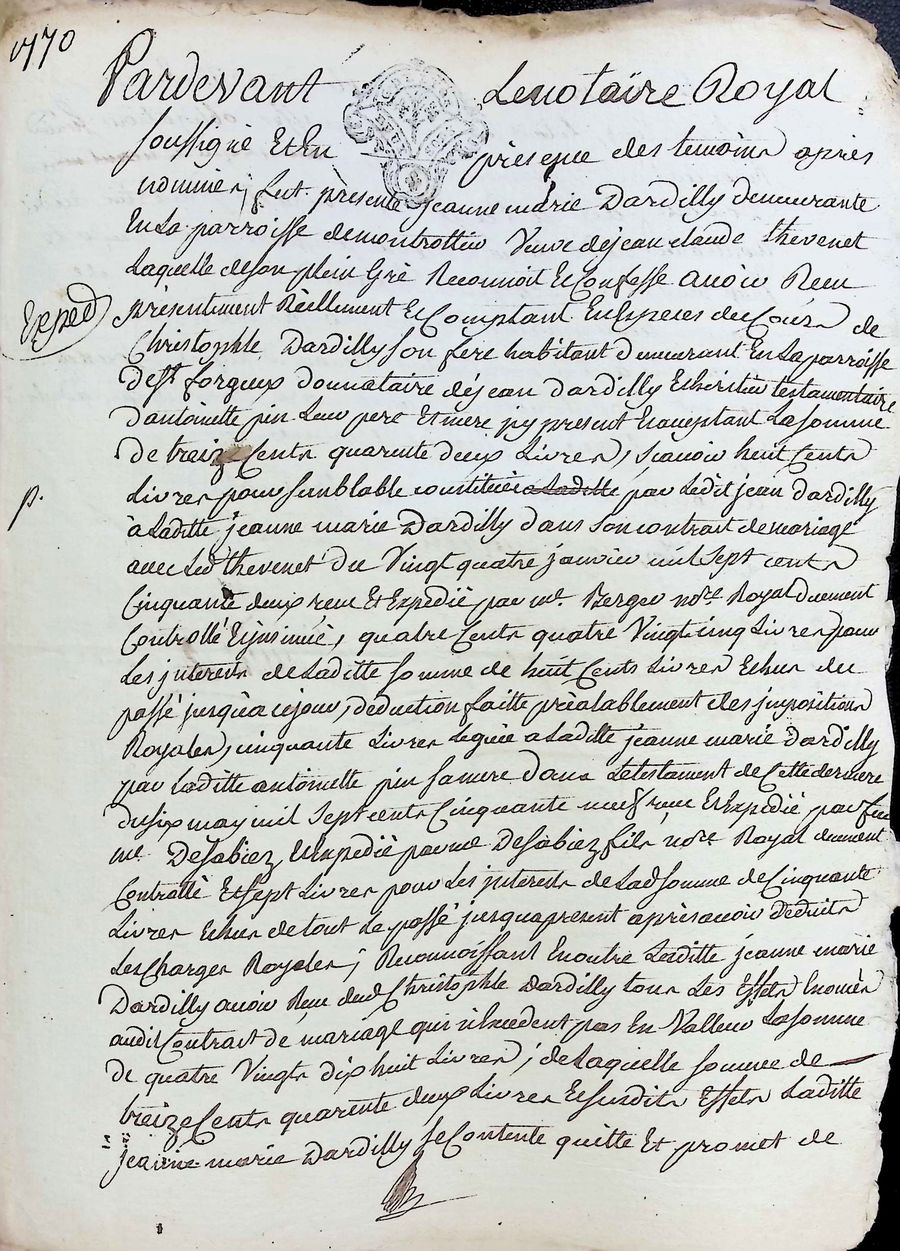 1770
Pardevant Le notaire Royal
soussigné Et En présence des temoins après
nommés ; fut présente jeanne marie Dardilly demeurante
En La parroisse demontrottier Veuve dejean claude thevenet
Laquelle deson plein Gré Reconnoit Et Confesse avoir Reçu
Exped
présentement Réellement Et Comptant En Especes du Cours de
Christophle Dardilly son frere habitant demeurant En La parroisse
de st forgeux donnataire dejean dardilly Et héritier testamentaire
d'antoinette pin Leur pere Et mere jcy present Et acceptant La somme
De treize Cents quarente deux Livres, scavoir huit Cents
p.
Livres pour semblable constituée a Laditte par Ledit jean dardilly
à Laditte jeanne marie Dardilly dans son contrat demariage
avec Led thevenet du Vingt quatre janvier mil sept cents
Cinquante deux reçu Et Expedié par me. Berger nore. Royal duement
Controllé Et jnsinué, quatre Cents quatre Vingt cinq Livres pour
Les jnterets de Laditte somme de huit Cents Livres Echus du
passé jusqu'a cejour, deduction faitte préalablement des jmpositions
Royales, cinquante Livres leguée a Laditte jeanne marie dardilly
par Laditte antoinette pin sa mere dans Le testament de Cette derniere
du six may mil sept cents Cinquante neuf reçu Et Expedié par feu
me. Desabiez, Et Expedié par me Desabiez fils nore. Royal duement
Controllé Et sept Livres pour Les jnterets de Lad somme de Cinquante
Livres Echus de tout Le passé jusqu'a present après avoir déduits
Les Charges Royales ; Reconnoissant En outre Laditte jeanne marie
Dardilly avoir Reçu dud Christophle Dardilly tous Les Effets Enoncés
audit Contrat de mariage qui n'Excedent pas En Valleur La somme
De quatre Vingts dix huit Livres ; de Laquelle somme de
treize Cents quarente deux Livres Et susdits Effets Laditte
jeanne marie Dardilly se Contente quitte Et promet de